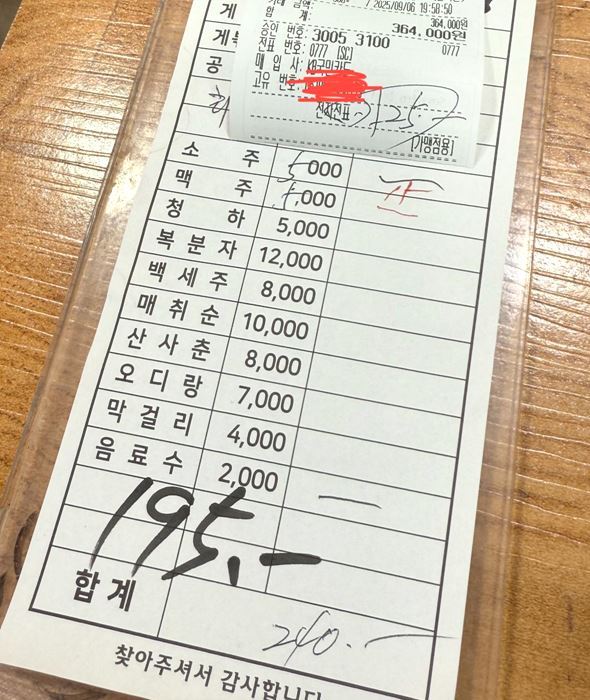 게
/ 2025/09/06 19:58:50
거래 금액 364,000원
합 계 364,000원
승인 번호: 3005 3100 0777
전표 번호: 0777 [SC]
매 입 사: KB국민카드
고유 번호:
전자전표
[가맹점용]
게
공
소 주 5000
맥 주 5,000 正
청 하 5,000
복 분 자 12,000
백 세 주 8,000
매 취 순 10,000
산 사 춘 8,000
오 디 랑 7,000
막 걸 리 4,000
음 료 수 2,000 一
195.-
합 계
240.-
찾아주셔서 감사합니다